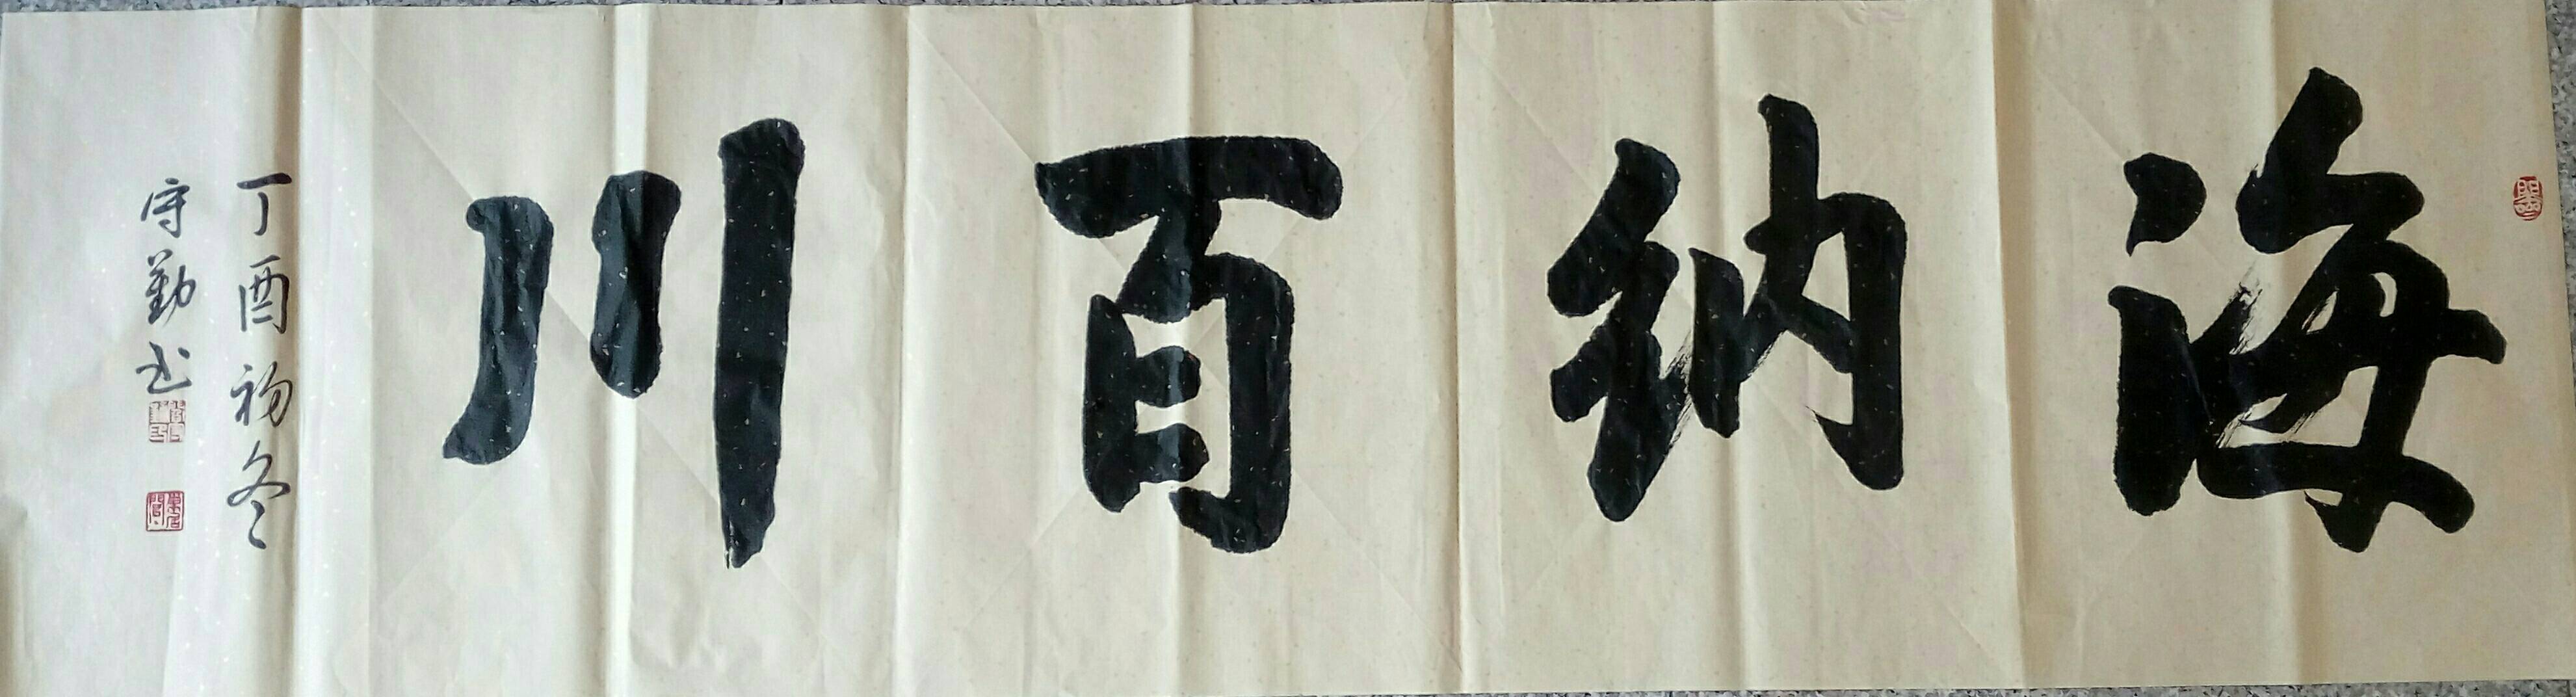 海纳百川
丁酉初冬
守勤书